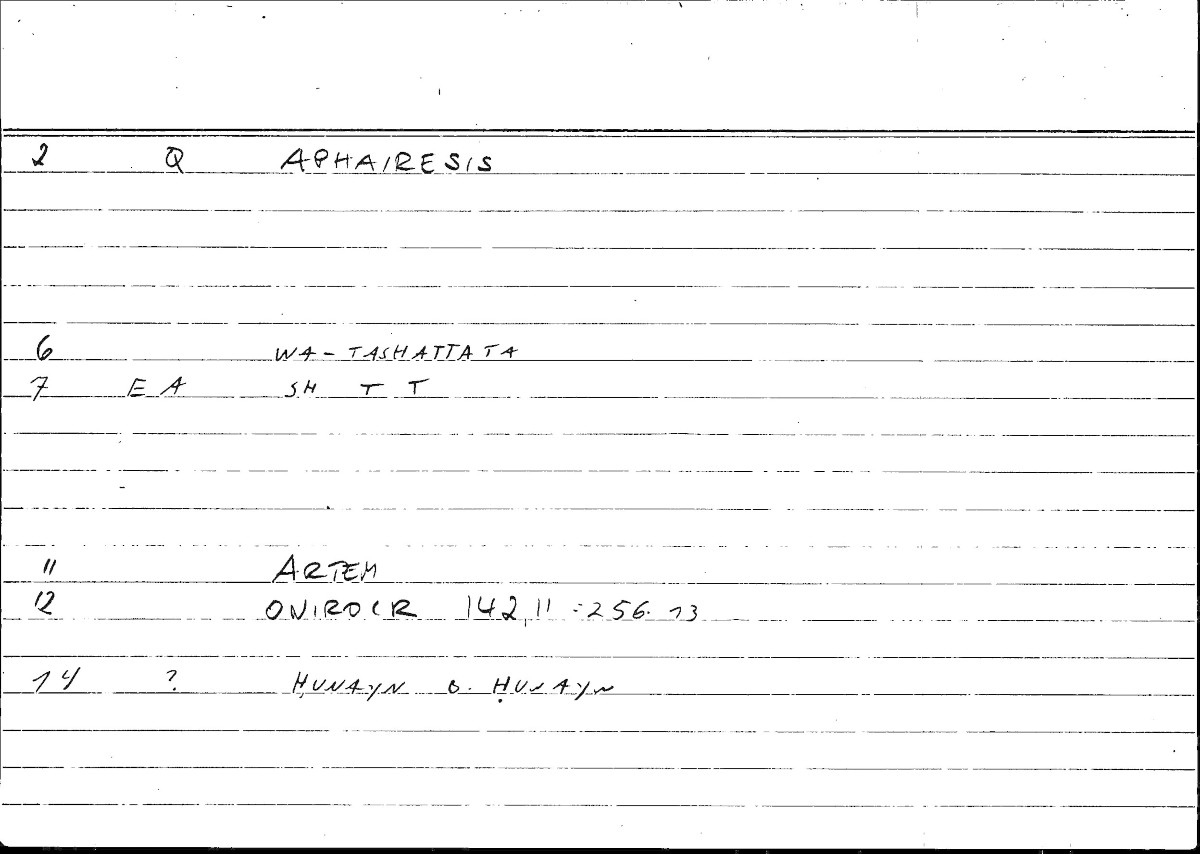 2 Q APHAIRESIS
6 WA-TASHATTATA
7 EA SH T T
11 ARTEM
12 ONIROCR 142,11 = 256.13
14 ? ḤUNAYN B. ḤUNAYN